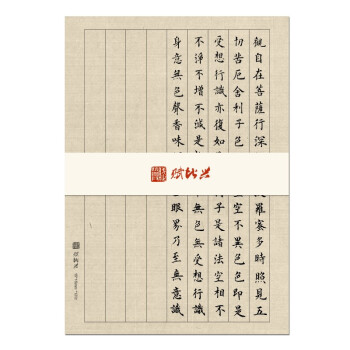 觀自在菩薩行深
羅蜜多時照見五
切苦厄舍利子色
空不異色色即是
受想行識亦復如
子是諸法空相不
不淨不增不減是
無色無受想行識
身意無色聲香味
眼界乃至無意識
赋比兴
赋比兴